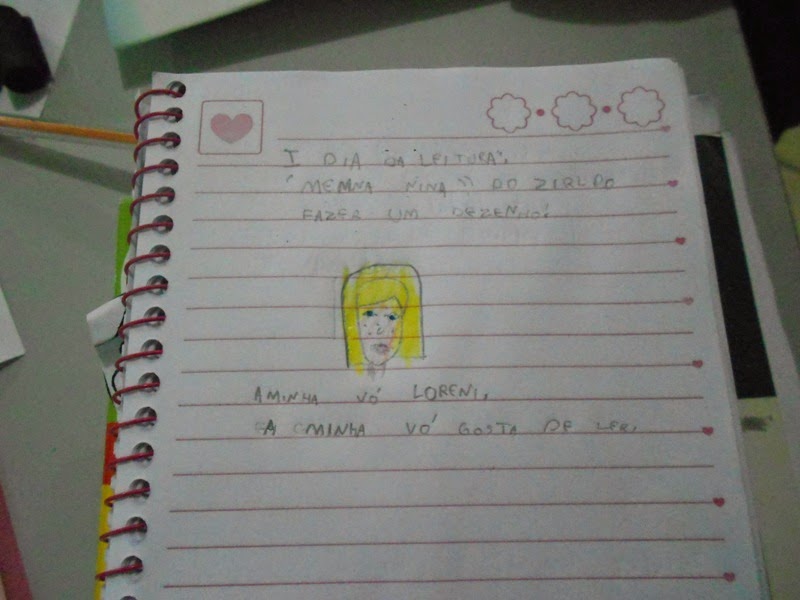 I DIA DA LEITURA".
"MEMNA NINA" DO ZIRLDO
FAZER UM DEZENHO:
AMINHA VÓ LORENI.
A MINHA VÓ GOSTA DE LER.